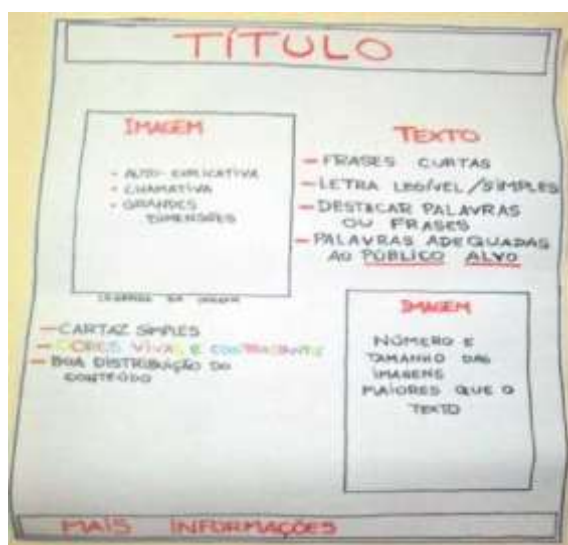 TÍTULO
IMAGEM
- AUTO-EXPLICATIVA
- CHAMATIVA
- GRANDES
DIMENSÕES
LEGENDA DA IMAGEM
TEXTO
- FRASES CURTAS
- LETRA LEGÍVEL/SIMPLES
- DESTACAR PALAVRAS
OU FRASES
- PALAVRAS ADEQUADAS
AO PÚBLICO ALVO
- CARTAZ SIMPLES
- CORES VIVAS E CONTRASTANTES
- BOA DISTRIBUIÇÃO DO
CONTEÚDO
IMAGEM
NÚMERO E
TAMANHO DAS
IMAGENS
MAIORES QUE O
TEXTO
MAIS INFORMAÇÕES